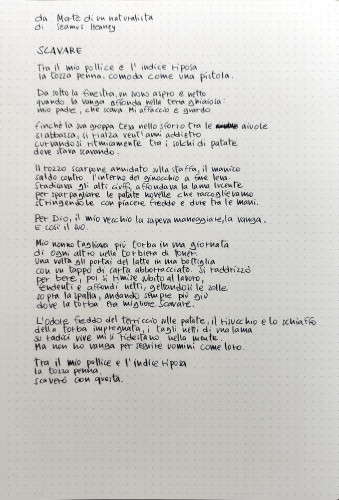 da Morte di un naturalista
di Seamus Heaney
SCAVARE
Tra il mio pollice e l'indice riposa
la tozza penna, comoda come una pistola.
Da sotto la finestra, un suono aspro e netto
quando la vanga affonda nella terra ghiaiosa:
mio padre, che scava. Mi affaccio e guardo
finché la sua groppa tesa nello sforzo tra le aivole
si abbassa, si rialza vent'anni addietro
curvandosi ritmicamente tra i solchi di patate
dove stava scavando.
Il rozzo scarpone annidato sulla staffa, il manico
saldo contro l'interno del ginocchio a fare leva.
Sradicava gli alti ciuffi, affondava la lama lucente
per sparpagliare le patate novelle che raccoglievamo
stringendole con piacere fredde e dure tra le mani.
Per Dio, il mio vecchio la sapeva maneggiare, la vanga.
E così il suo.
Mio nonno tagliava più torba in una giornata
di ogni altro nella torbiera di Toner.
Una volta gli portai del latte in una bottiglia
con un tappo di carta abborracciato. Si raddrizzò
per bere, poi si rimise subito al lavoro,
fendenti e affondi netti, gettandosi le zolle
sopra la spalla, andando sempre più giù
dove la torba era migliore. Scavare.
L'odore freddo del terriccio nelle patate, il risucchio e lo schiaffo
della torba impregnata, i tagli netti di una lama
su radici vive mi si ridestano nella mente.
Ma non ho vanga per seguire uomini come loro.
Tra il mio pollice e l'indice riposa
la tozza penna.
Scaverò con questa.